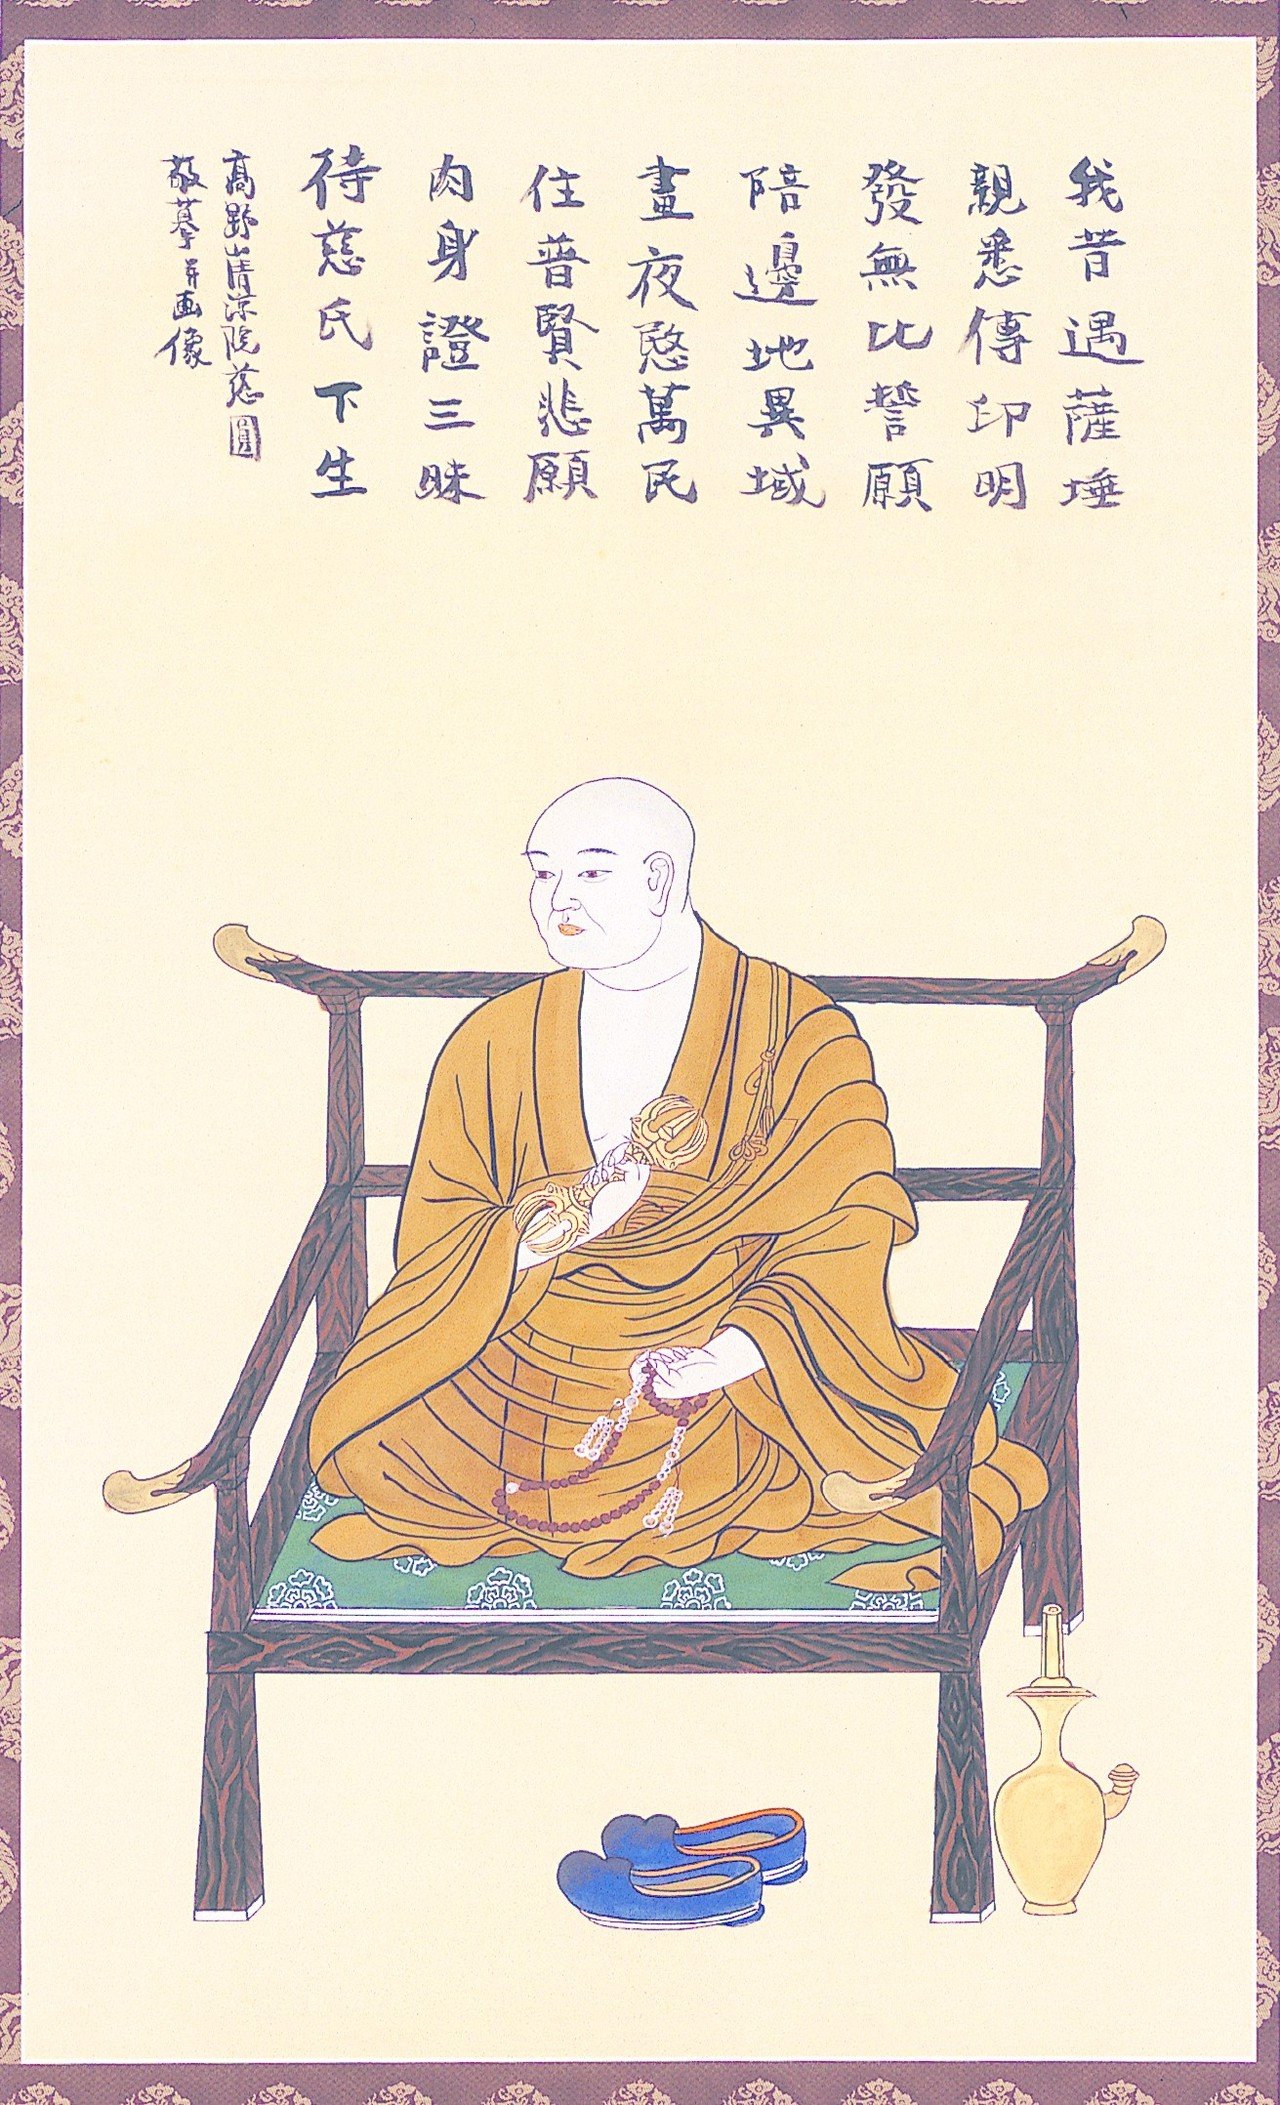 我昔遇薩埵
親悉傳印明
發無比誓願
陪邊地異域
晝夜愍萬民
住普賢悲願
肉身證三昧
待慈氏下生
高野山清涼院慈圓
敬摹并画像